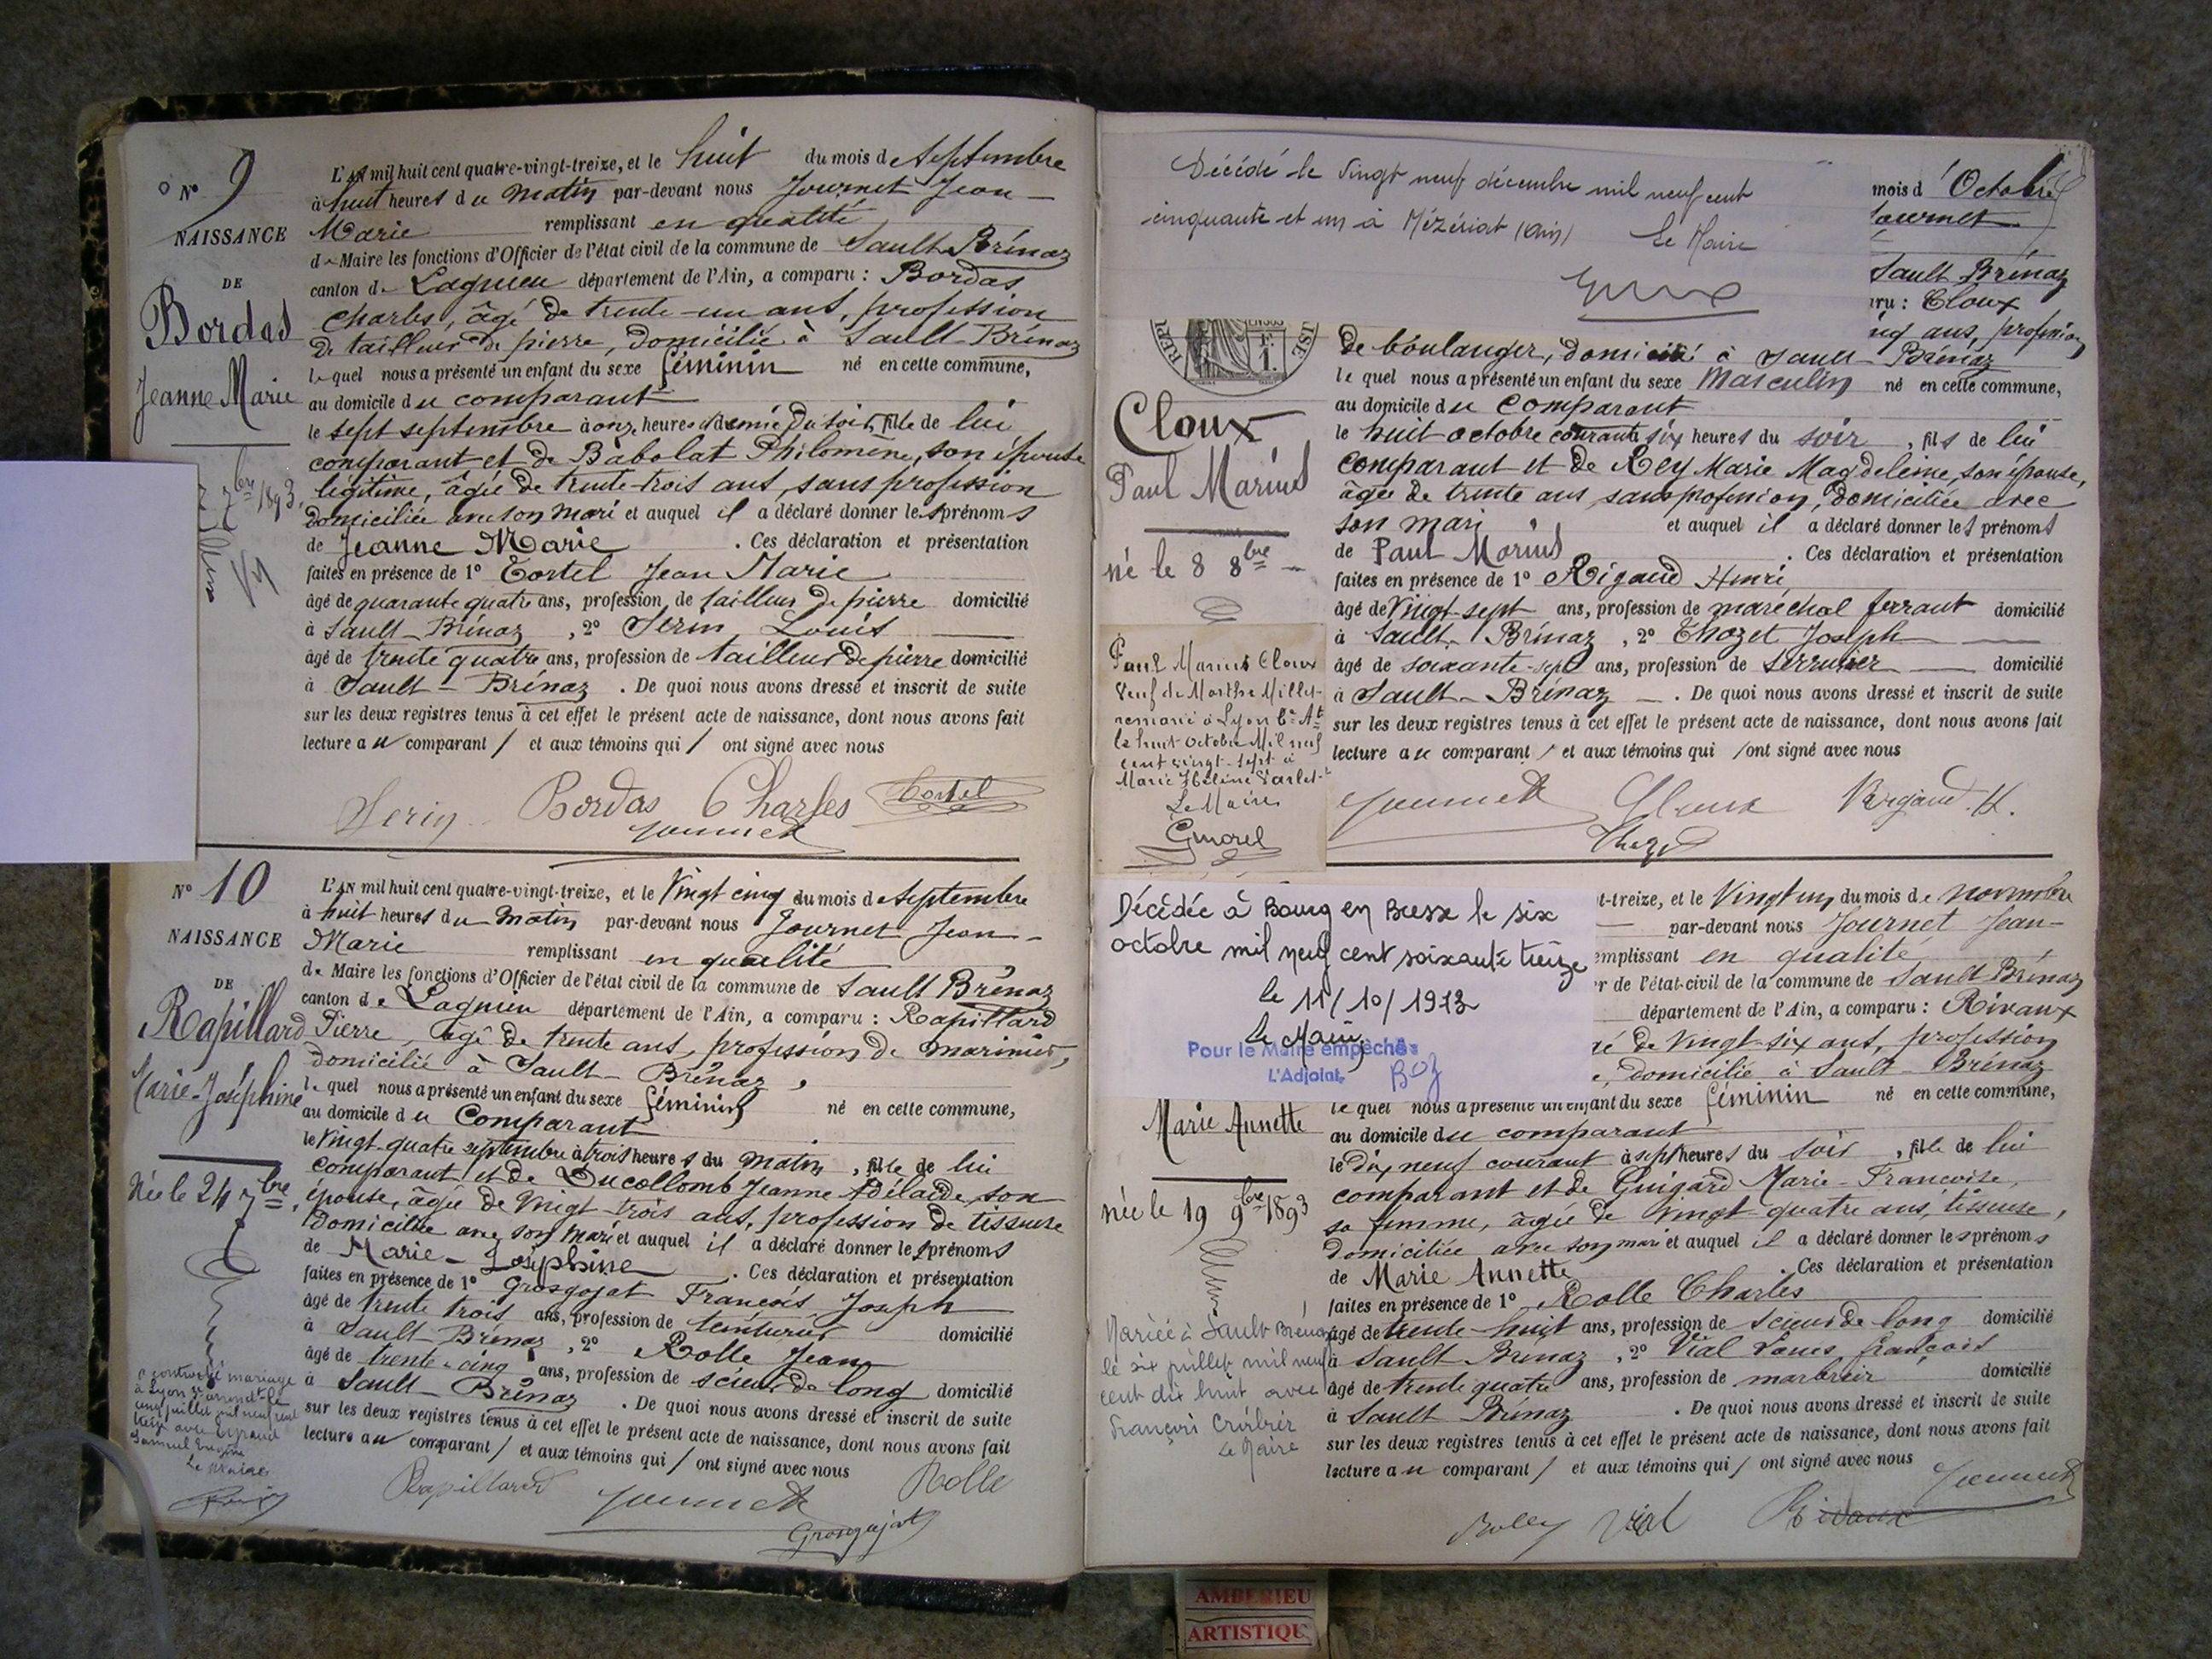 N° 9
NAISSANCE
DE
Bordas
Jeanne Marie
7bre 1893.
L'AN mil huit cent quatre-vingt-treize, et le huit du mois de Septembre
à huit heures du matin par-devant nous Journet Jean-
Marie remplissant en qualité
de Maire les fonctions d'Officier de l'état civil de la commune de Sault Brénaz
canton de Lagnieu département de l'Ain, a comparu : Bordas
Charles, âgé de trente-un ans, profession
de tailleur de pierre, domicilié à Sault-Brénaz
lequel nous a présenté un enfant du sexe féminin né en cette commune,
au domicile du comparant
le sept septembre à onze heures et demie du soir, fille de lui
comparant et de Babolat Philomène, son épouse
légitime, âgée de trente-trois ans, sans profession
domiciliée avec son mari et auquel il a déclaré donner les prénoms
de Jeanne Marie . Ces déclaration et présentation
faites en présence de 1° Tortel Jean Marie
âgé de quarante quatre ans, profession de tailleur de pierre domicilié
à Sault-Brénaz , 2° Serin Louis
âgé de trente quatre ans, profession de tailleur de pierre domicilié
à Sault-Brénaz . De quoi nous avons dressé et inscrit de suite
sur les deux registres tenus à cet effet le présent acte de naissance, dont nous avons fait
lecture au comparant / et aux témoins qui / ont signé avec nous
Serin Bordas Charles Tortel
Journet
N° 10
NAISSANCE
DE
Rapillard
Marie-Joséphine
Née le 24 7bre,
contracté mariage
à Lyon arrondt le
cinq juillet mil neuf cent
treize avec
Samuel Eugène
Le Maire
L'AN mil huit cent quatre-vingt-treize, et le Vingt cinq du mois de Septembre
à huit heures du matin par-devant nous Journet Jean-
Marie remplissant en qualité
de Maire les fonctions d'Officier de l'état civil de la commune de Sault Brénaz
canton de Lagnieu département de l'Ain, a comparu : Rapillard
Pierre, âgé de trente ans, profession de marinier,
domicilié à Sault-Brénaz,
lequel nous a présenté un enfant du sexe féminin né en cette commune,
au domicile du Comparant
le Vingt-quatre septembre à trois heures du matin, fille de lui
comparant et de Ducollomb Jeanne Adélaïde, son
épouse, âgée de Vingt-trois ans, profession de tisseuse
domiciliée avec son mari et auquel il a déclaré donner les prénoms
de Marie-Joséphine . Ces déclaration et présentation
faites en présence de 1° Grosgojat François Joseph
âgé de trente trois ans, profession de teinturier
à Sault Brénaz , 2° Rolle Jean domicilié
âgé de trente-cinq ans, profession de scieur de long domicilié
à Sault-Brénaz . De quoi nous avons dressé et inscrit de suite
sur les deux registres tenus à cet effet le présent acte de naissance, dont nous avons fait
lecture au comparant / et aux témoins qui / ont signé avec nous
Rapillard Journet Rolle
Grosgojat
Décédé le Vingt neuf décembre mil neuf cent
cinquante et un à Mézériat (Ain)
Le Maire
mois d'Octobre
Journet
Sault Brénaz
ru : Cloux
nq ans, profession
Cloux
Paul Marius
né le 8 8bre
Paul Marius Cloux
Veuf de Marthe Millet
remarié à Lyon 6e At
le huit Octobre Mil neuf
cent vingt-sept à
Marie Hélène Varlet
Le Maire
Gmorel
de boulanger, domicilié à Sault-Brénaz
lequel nous a présenté un enfant du sexe Masculin né en cette commune,
au domicile du Comparant
le huit octobre courant à six heures du soir , fils de lui
comparant et de Rey Marie Magdeleine, son épouse,
âgée de trente ans, sans profession, domiciliée avec
son mari et auquel il a déclaré donner les prénoms
de Paul Marius . Ces déclaration et présentation
faites en présence de 1° Rigaud Henri
âgé de Vingt-sept ans, profession de maréchal ferrant domicilié
à Sault-Brénaz , 2° Thozet Joseph
âgé de soixante-sept ans, profession de serrurier domicilié
à Sault-Brénaz . De quoi nous avons dressé et inscrit de suite
sur les deux registres tenus à cet effet le présent acte de naissance, dont nous avons fait
lecture au comparant / et aux témoins qui / ont signé avec nous
Journet Cloux Rigaud. H.
Thozet
Décédée à Bourg en Bresse le six
octobre mil neuf cent soixante treize
le 11/10/1973
Le Maire,
Pour le Maire empêché:
L'Adjoint,
t-treize, et le Vingt un du mois de novembre
par-devant nous Journet Jean-
emplissant en qualité
r de l'état-civil de la commune de Sault Brénaz
département de l'Ain, a comparu : Rivaux
é de Vingt-six ans, profession
e, domicilié à Sault-Brénaz
lequel nous a présenté un enfant du sexe féminin né en cette commune,
Marie Annette
née le 19 9bre 1893
Mariée à Sault-Brénaz
le six juillet mil neuf
cent dix huit avec
François
Le Maire
au domicile du comparant
le Dix neuf courant à sept heures du soir , fille de lui
comparant et de Guigard Marie-Françoise,
sa femme, âgée de vingt-quatre ans, tisseuse,
domiciliée avec son mari et auquel il a déclaré donner les prénoms
de Marie Annette . Ces déclaration et présentation
faites en présence de 1° Rolle Charles
âgé de trente-huit ans, profession de scieur de long domicilié
à Sault Brénaz , 2° Vial Louis François
âgé de trente quatre ans, profession de marbrier domicilié
à Sault Brénaz . De quoi nous avons dressé et inscrit de suite
sur les deux registres tenus à cet effet le présent acte de naissance, dont nous avons fait
lecture au comparant / et aux témoins qui / ont signé avec nous
Journet
Rolle Vial Rivaux
AMBERIEU
ARTISTIQU